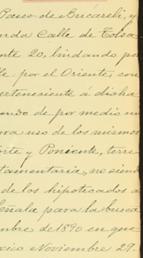 Paseo de Bucareli, y
nda Calle de Tolsa
nte 20, lindando por
le por el Oriente, con
erteneciente á dicha
endo de por medio un
ara uso de los mismos
orte y Poniente, terre
tamentaria, no siend
de los hipotecados a
eñala para la busca
mbre de 1890 en que
Noviembre 29.